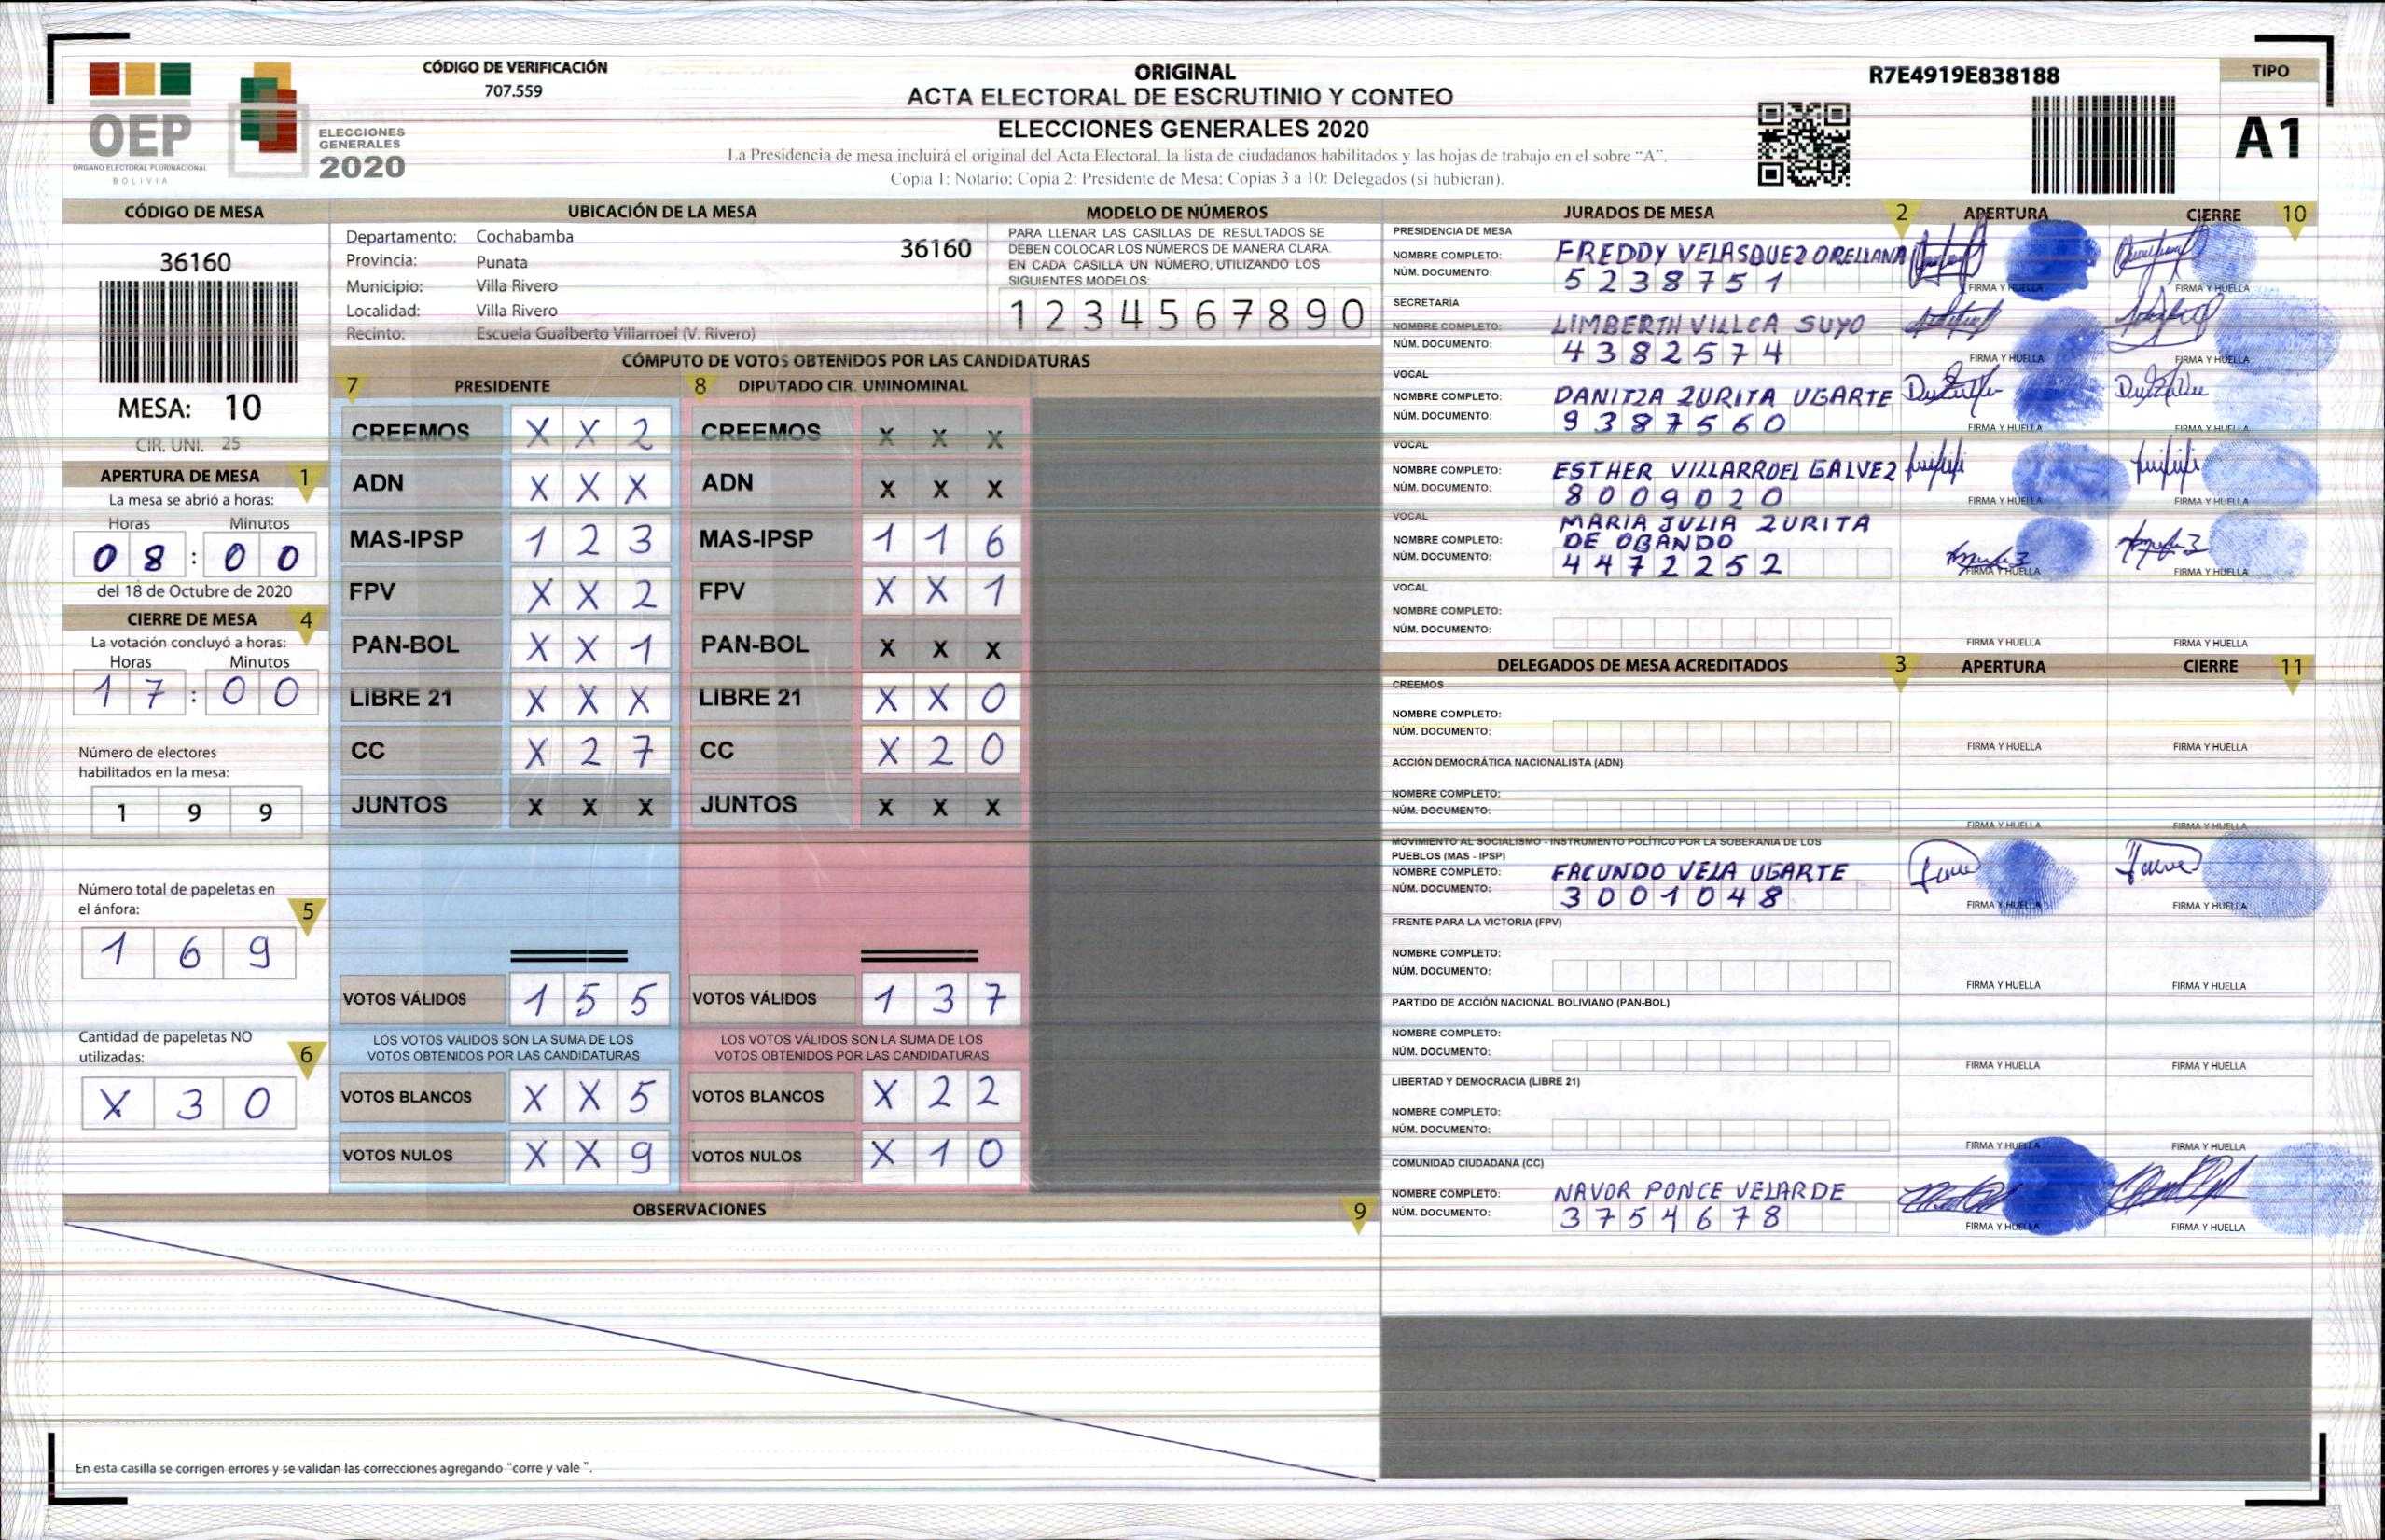 OEP
ÓRGANO ELECTORAL PLURINACIONAL
BOLIVIA
ELECCIONES
GENERALES
2020
CÓDIGO DE VERIFICACIÓN
707.559
ORIGINAL
ACTA ELECTORAL DE ESCRUTINIO Y CONTEO
ELECCIONES GENERALES 2020
La Presidencia de mesa incluirá el original del Acta Electoral, la lista de ciudadanos habilitados y las hojas de trabajo en el sobre "A".
Copia 1: Notario; Copia 2: Presidente de Mesa; Copias 3 a 10: Delegados (si hubieran).
R7E4919E838188
TIPO
A1
CÓDIGO DE MESA
36160
MESA: 10
CIR. UNI. 25
APERTURA DE MESA 1
La mesa se abrió a horas:
Horas Minutos
08:00
del 18 de Octubre de 2020
CIERRE DE MESA 4
La votación concluyó a horas:
Horas Minutos
17:00
Número de electores
habilitados en la mesa:
1 9 9
Número total de papeletas en
el ánfora: 5
1 6 9
Cantidad de papeletas NO
utilizadas: 6
X 3 0
UBICACIÓN DE LA MESA
Departamento: Cochabamba
36160
Provincia: Punata
Municipio: Villa Rivero
Localidad: Villa Rivero
Recinto: Escuela Gualberto Villarroel (V. Rivero)
MODELO DE NÚMEROS
PARA LLENAR LAS CASILLAS DE RESULTADOS SE
DEBEN COLOCAR LOS NÚMEROS DE MANERA CLARA.
EN CADA CASILLA UN NÚMERO, UTILIZANDO LOS
SIGUIENTES MODELOS:
1 2 3 4 5 6 7 8 9 0
CÓMPUTO DE VOTOS OBTENIDOS POR LAS CANDIDATURAS
7 PRESIDENTE 8 DIPUTADO CIR. UNINOMINAL
CREEMOS X X 2 CREEMOS X X X
ADN X X X ADN X X X
MAS-IPSP 1 2 3 MAS-IPSP 1 1 6
FPV X X 2 FPV X X 1
PAN-BOL X X 1 PAN-BOL X X X
LIBRE 21 X X X LIBRE 21 X X 0
CC X 2 7 CC X 2 0
JUNTOS X X X JUNTOS X X X
VOTOS VÁLIDOS 1 5 5 VOTOS VÁLIDOS 1 3 7
LOS VOTOS VÁLIDOS SON LA SUMA DE LOS LOS VOTOS VÁLIDOS SON LA SUMA DE LOS
VOTOS OBTENIDOS POR LAS CANDIDATURAS VOTOS OBTENIDOS POR LAS CANDIDATURAS
VOTOS BLANCOS X X 5 VOTOS BLANCOS X 2 2
VOTOS NULOS X X 9 VOTOS NULOS X 1 0
OBSERVACIONES 9
En esta casilla se corrigen errores y se validan las correcciones agregando "corre y vale ".
JURADOS DE MESA 2 APERTURA CIERRE 10
PRESIDENCIA DE MESA
NOMBRE COMPLETO: FREDDY VELASQUEZ ORELLANA
NÚM. DOCUMENTO: 5238751
FIRMA Y HUELLA FIRMA Y HUELLA
SECRETARÍA
NOMBRE COMPLETO: LIMBERTH VILLCA SUYO
NÚM. DOCUMENTO: 4382574
FIRMA Y HUELLA FIRMA Y HUELLA
VOCAL
NOMBRE COMPLETO: DANITZA ZURITA UGARTE
NÚM. DOCUMENTO: 9387560
FIRMA Y HUELLA FIRMA Y HUELLA
VOCAL
NOMBRE COMPLETO: ESTHER VILLARROEL GALVEZ
NÚM. DOCUMENTO: 8009020
FIRMA Y HUELLA FIRMA Y HUELLA
VOCAL
NOMBRE COMPLETO: MARIA JULIA ZURITA
DE OBANDO
NÚM. DOCUMENTO: 4472252
FIRMA Y HUELLA FIRMA Y HUELLA
VOCAL
NOMBRE COMPLETO:
NÚM. DOCUMENTO:
FIRMA Y HUELLA FIRMA Y HUELLA
DELEGADOS DE MESA ACREDITADOS 3 APERTURA CIERRE 11
CREEMOS
NOMBRE COMPLETO:
NÚM. DOCUMENTO:
FIRMA Y HUELLA FIRMA Y HUELLA
ACCIÓN DEMOCRÁTICA NACIONALISTA (ADN)
NOMBRE COMPLETO:
NÚM. DOCUMENTO:
FIRMA Y HUELLA FIRMA Y HUELLA
MOVIMIENTO AL SOCIALISMO - INSTRUMENTO POLÍTICO POR LA SOBERANIA DE LOS
PUEBLOS (MAS - IPSP)
NOMBRE COMPLETO: FACUNDO VELA UGARTE
NÚM. DOCUMENTO: 3001048
FIRMA Y HUELLA FIRMA Y HUELLA
FRENTE PARA LA VICTORIA (FPV)
NOMBRE COMPLETO:
NÚM. DOCUMENTO:
FIRMA Y HUELLA FIRMA Y HUELLA
PARTIDO DE ACCIÓN NACIONAL BOLIVIANO (PAN-BOL)
NOMBRE COMPLETO:
NÚM. DOCUMENTO:
FIRMA Y HUELLA FIRMA Y HUELLA
LIBERTAD Y DEMOCRACIA (LIBRE 21)
NOMBRE COMPLETO:
NÚM. DOCUMENTO:
FIRMA Y HUELLA FIRMA Y HUELLA
COMUNIDAD CIUDADANA (CC)
NOMBRE COMPLETO: NAVOR PONCE VELARDE
NÚM. DOCUMENTO: 3754678
FIRMA Y HUELLA FIRMA Y HUELLA